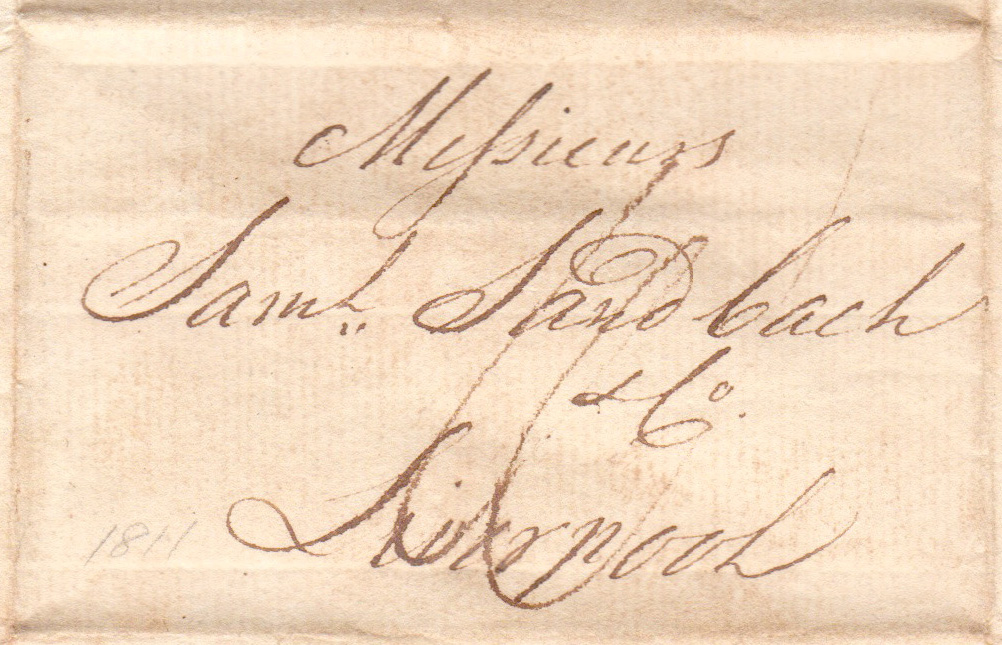 Messieurs
Saml. Sandbach
& Co.
Liverpool
1811